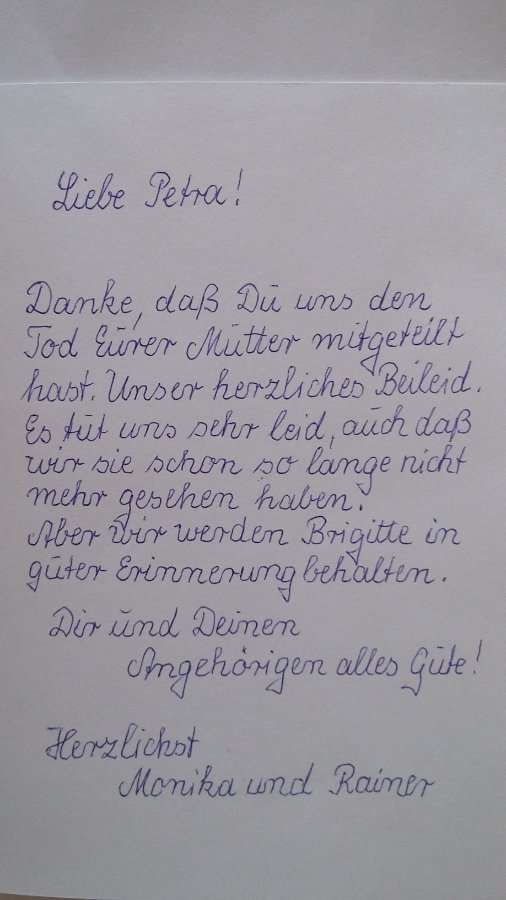 Liebe Petra!
Danke, daß Du uns den
Tod Eurer Mutter mitgeteilt
hast. Unser herzliches Beileid.
Es tut uns sehr leid, auch daß
wir sie schon so lange nicht
mehr gesehen haben.
Aber wir werden Brigitte in
guter Erinnerung behalten.
Dir und Deinen
Angehörigen alles Gute!
Herzlichst
Monika und Rainer